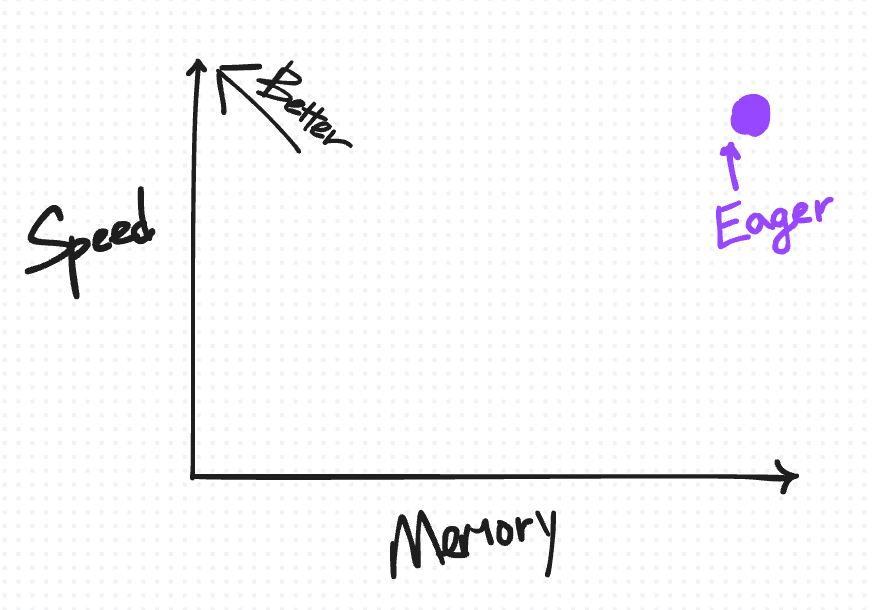 Better
Speed
Eager
Memory